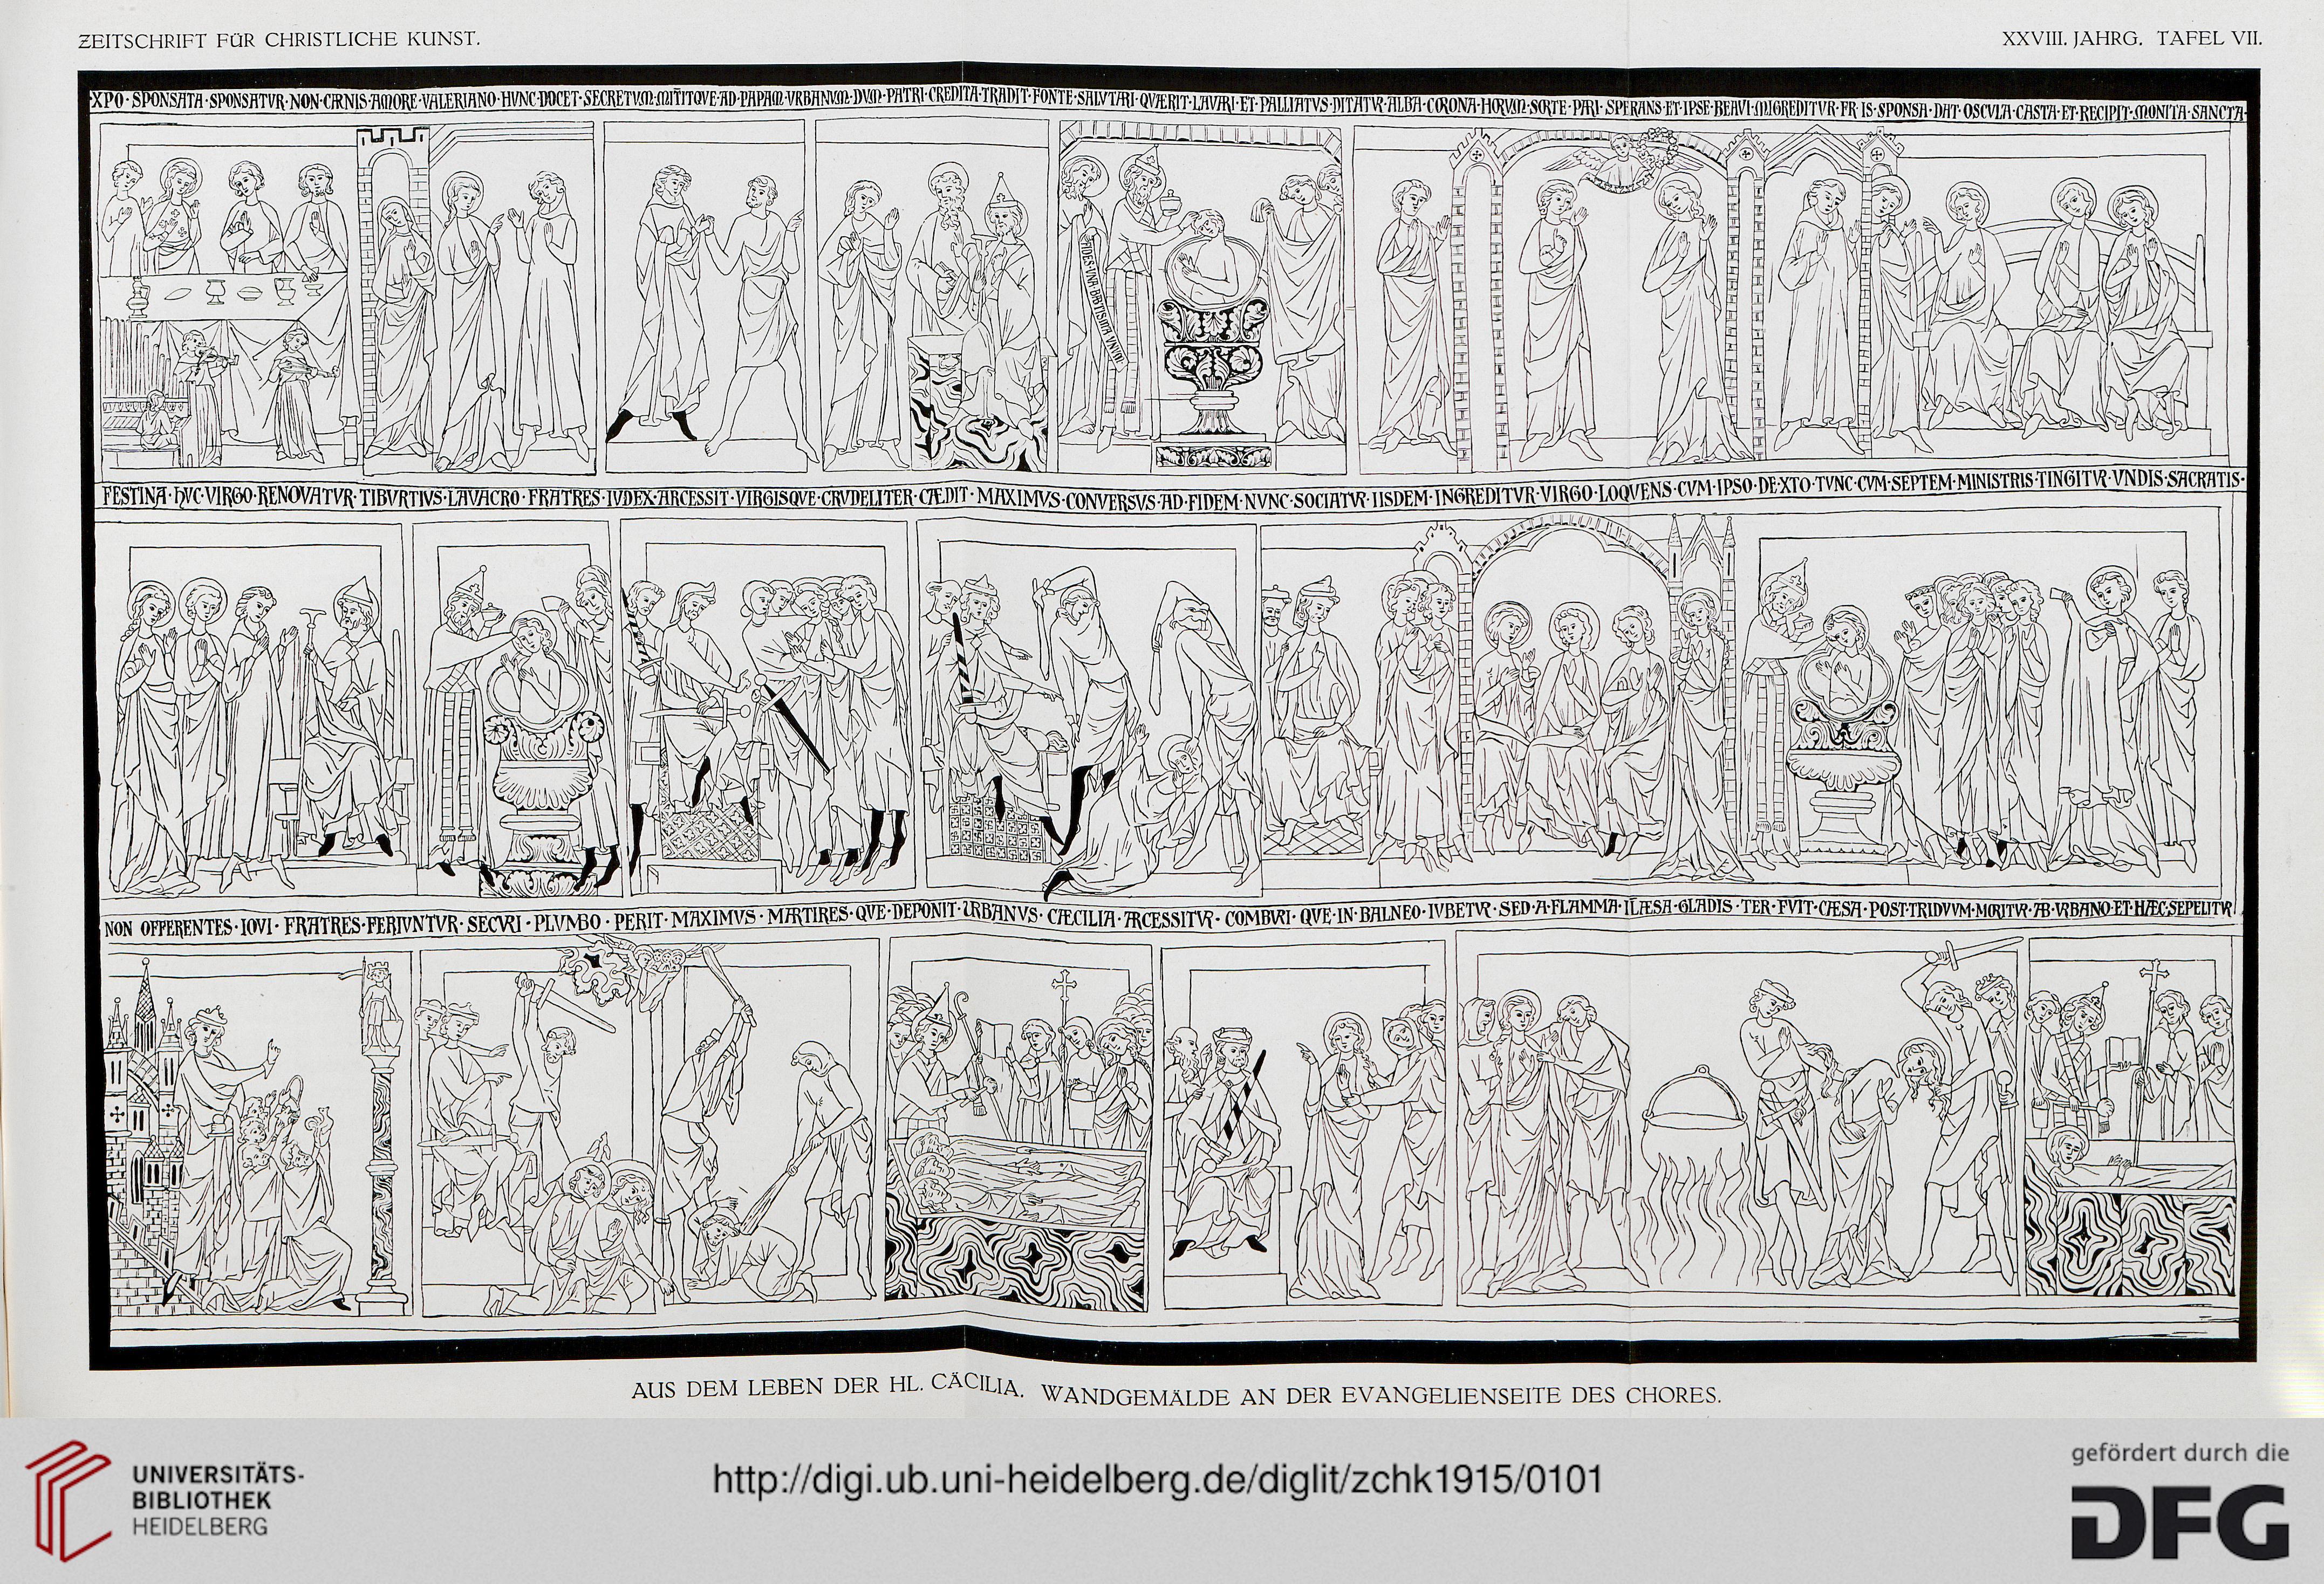 ZEITSCHRIFT FÜR CHRISTLICHE KUNST.
XXVIII. JAHRG. TAFEL VII.
XPO · SPONSATA · SPONSATVR · NON · CARNIS · AMORE · VALERIANO · HVNC · DOCET · SECRETVM · MITITQVE · AD · PAPAM · VRBANVM · DVM · PATRI · CREDITA · TRADIT · FONTE · SALVTARI · QVÆRIT · LAVARI · ET · PALLIATVS · DITATVR · ALBA · CORONA · HORVM · SORTE · PARI · SPERANS · ET · IPSE · BEAVI · INGREDITVR · FR IS · SPONSA · DAT · OSCVLA · CASTA · ET · RECIPIT · MONITA · SANCTA ·
FIDES · VNA · BABTISMA · VNVM
FESTINA · HVC · VIRGO · RENOVATVR · TIBVRTIVS · LAVACRO · FRATRES · IVDEX · ARCESSIT · VIRGISQVE · CRVDELITER · CÆDIT · MAXIMVS · CONVERSVS · AD · FIDEM · NVNC · SOCIATVR · IISDEM · INGREDITVR · VIRGO · LOQVENS · CVM · IPSO · DE · XTO · TVNC · CVM · SEPTEM · MINISTRIS · TINGITVR · VNDIS · SACRATIS ·
NON OFFERENTES · IOVI · FRATRES · FERIVNTVR · SECVRI · PLVMBO · PERIT · MAXIMVS · MARTIRES · QVE · DEPONIT · URBANVS · CÆCILIA · ARCESSITVR · COMBVRI · QVE · IN · BALNEO · IVBETVR · SED · A · FLAMMA · ILÆSA · GLADIS · TER · FVIT · CÆSA · POST · TRIDVVM · MORITVR · AB · VRBANO · ET · HÆC · SEPELITVR
AUS DEM LEBEN DER HL. CÄCILIA. WANDGEMÄLDE AN DER EVANGELIENSEITE DES CHORES.
UNIVERSITÄTS-
BIBLIOTHEK
HEIDELBERG
http://digi.ub.uni-heidelberg.de/diglit/zchk1915/0101
gefördert durch die
DFG